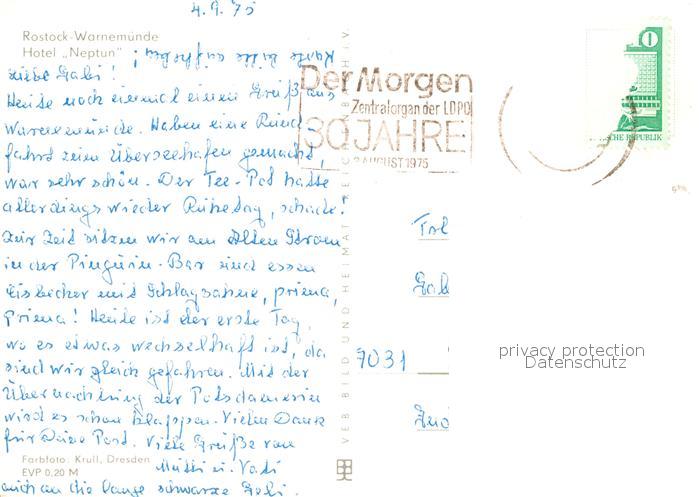 4.9.75
Rostock-Warnemünde
Hotel „Neptun"
Karte bitte aufheben!
Liebe Gabi!
Heute noch einmal einen Gruß aus
Warnemünde. Haben eine Rund
fahrt zum Überseehafen gemacht,
war sehr schön. Der Tee-Pot hatte
allerdings wieder Ruhetag, schade!
Zur Zeit sitzen wir am Alten Strom
in der Pinguin-Bar und essen
Eisbecher mit Schlagsahne, prima,
prima! Heute ist der erste Tag,
wo es etwas wechselhaft ist, da
sind wir gleich gefahren. Mit der
Übernachtung der Potsdamerin
wird es schon klappen. Vielen Dank
für Deine Post. Viele Grüße von
Mutti u. Vati
auch an die lange schwarze Gabi.
Farbfoto: Krull, Dresden
EVP 0,20 M
VEB BILD UND HEIMAT REICHENBACH I.V.
Der Morgen
Zentralorgan der LDPD
30 JAHRE
3 AUGUST 1975
CHE REPUBLIK
7031
privacy protection
Datenschutz